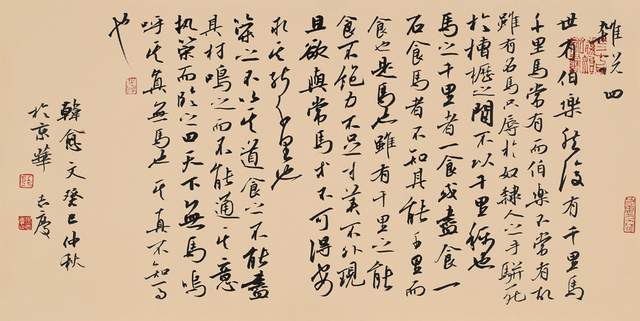 雜说四
世有伯樂然後有千里馬
千里馬常有而伯樂不常有故
雖有名馬只辱於奴隸人之手駢死
於槽櫪之間不以千里稱也
馬之千里者一食或盡食一
石食馬者不知其能千里而
食也是馬也雖有千里之能
食不飽力不足才美不外現
且欲與常馬等不可得安
求其能千里也
策之不以其道食之不能盡
其材鳴之而不能通其意
执策而臨之曰天下無馬嗚
呼其真無馬也其真不知馬
也
韓愈文癸巳仲秋
於京華